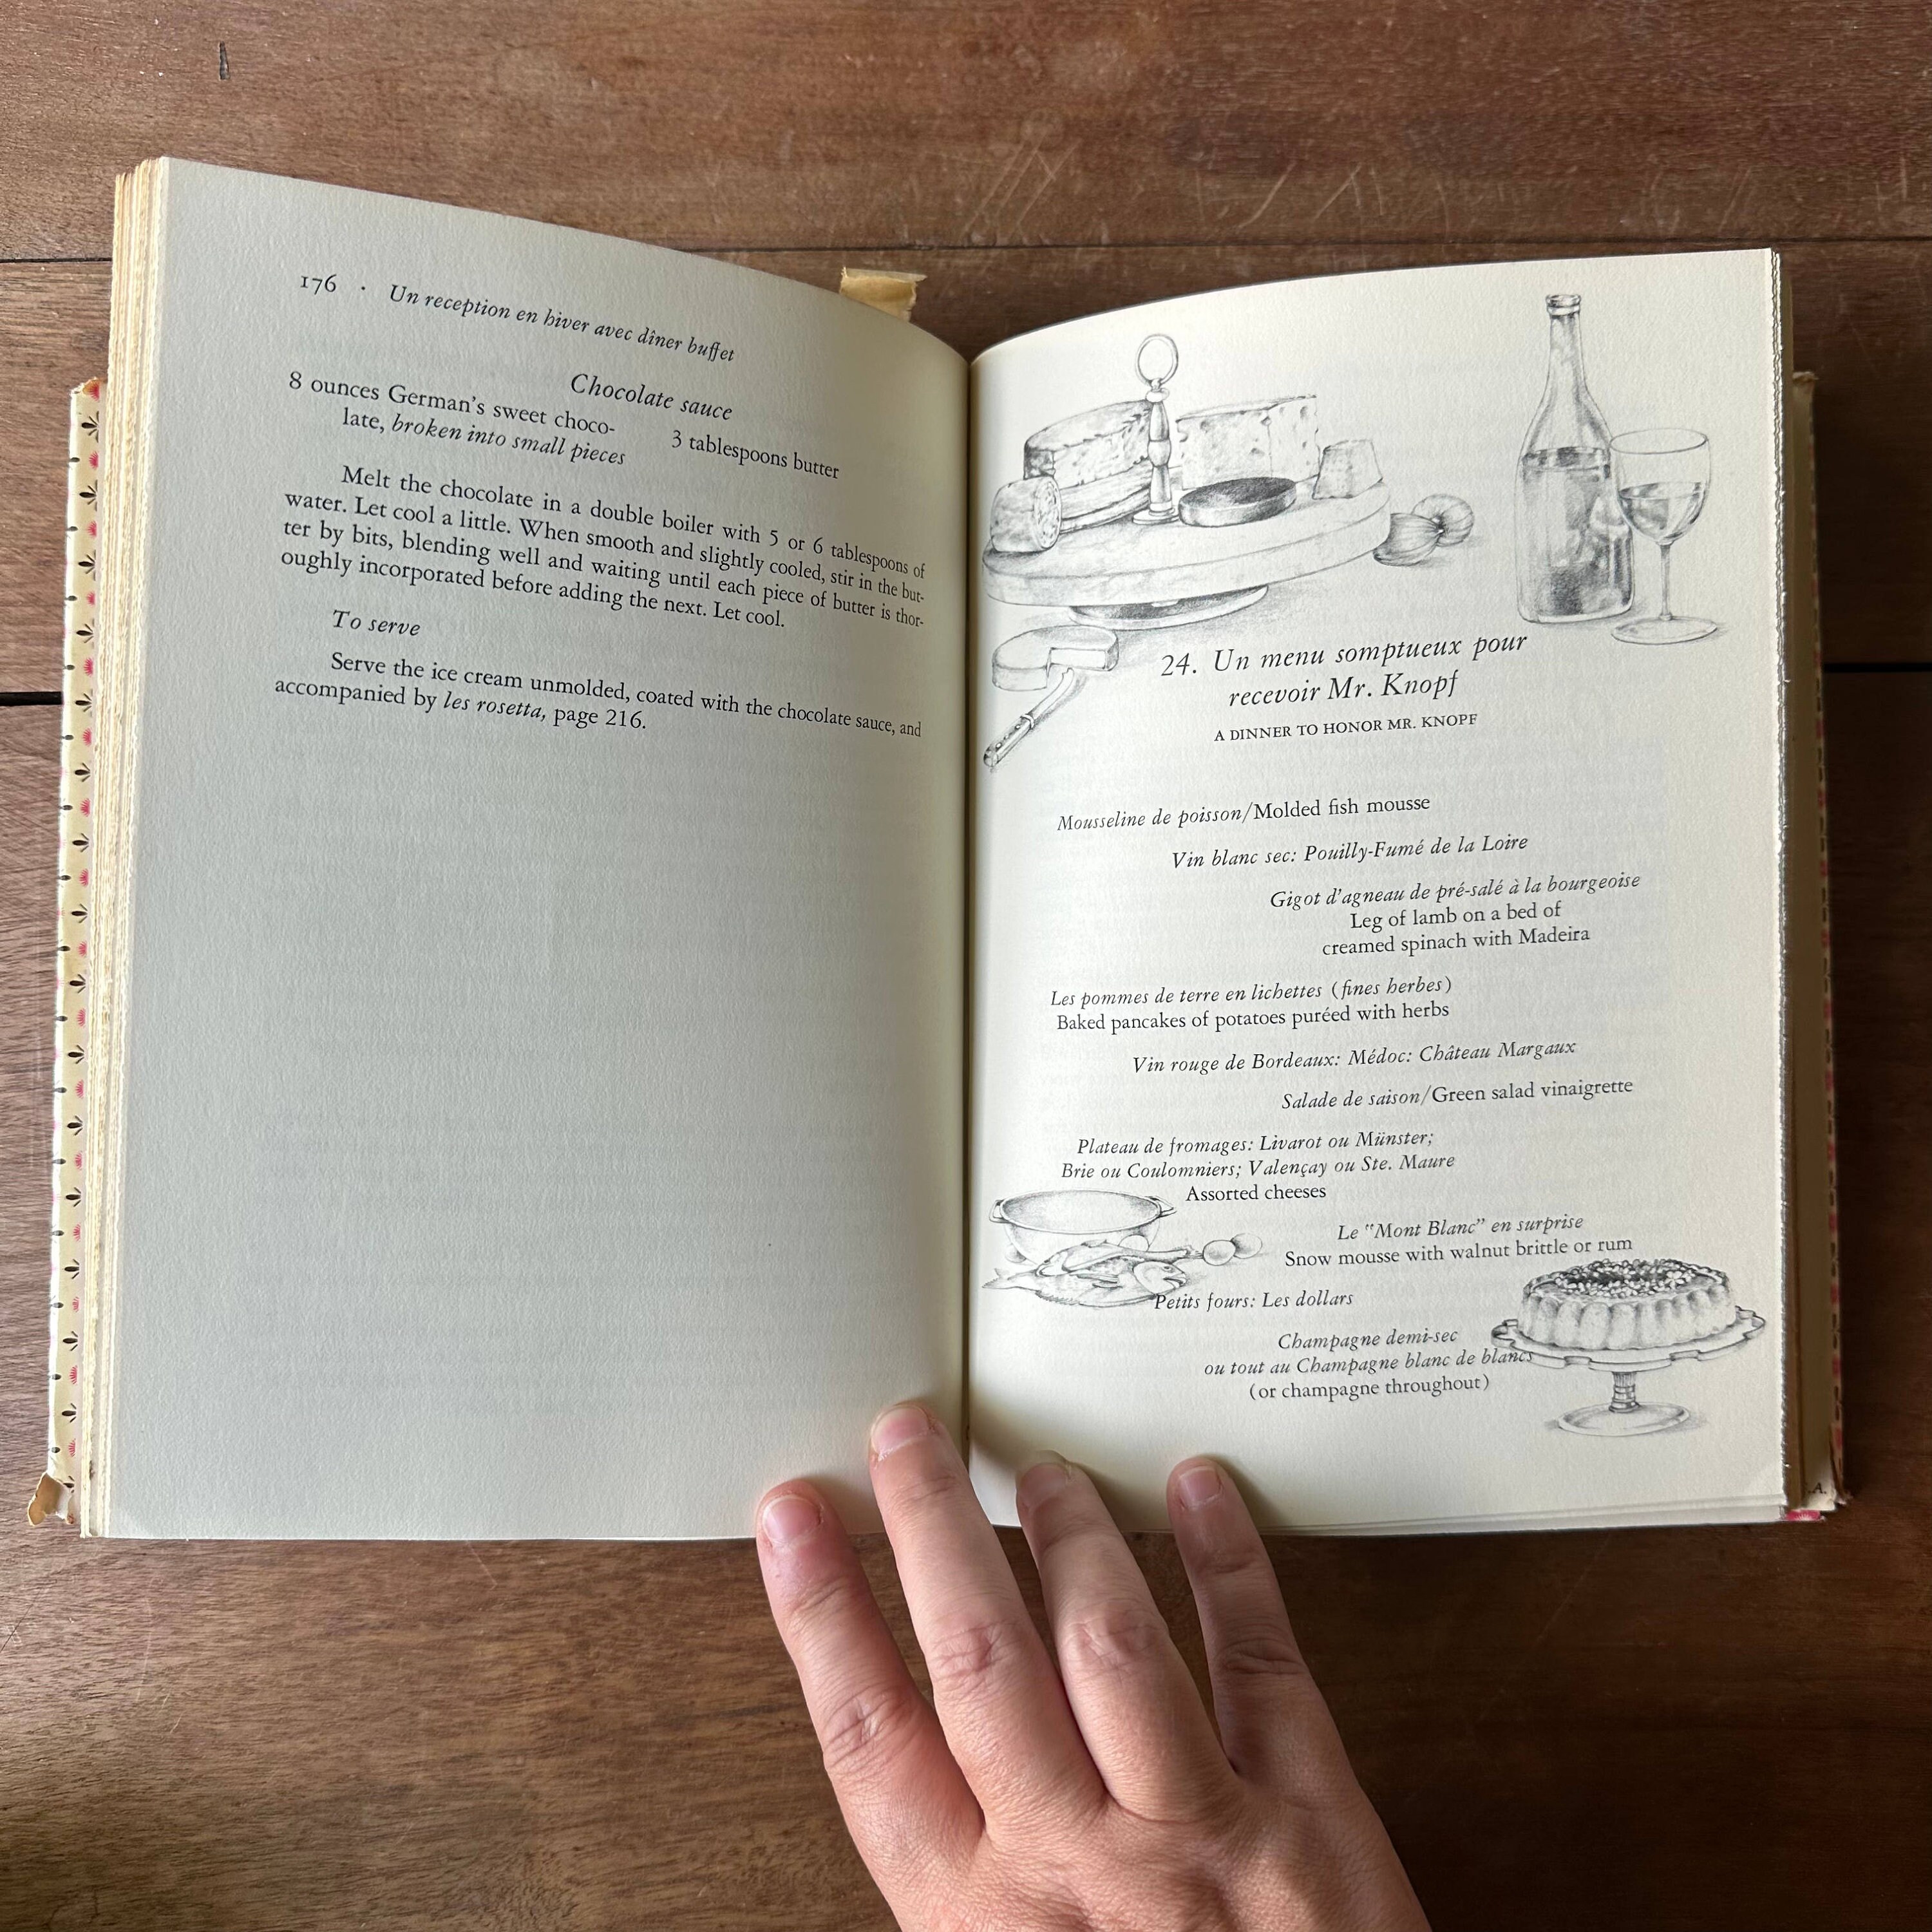 176 · Un reception en hiver avec dîner buffet
Chocolate sauce
8 ounces German's sweet choco-
late, broken into small pieces
3 tablespoons butter
Melt the chocolate in a double boiler with 5 or 6 tablespoons of
water. Let cool a little. When smooth and slightly cooled, stir in the but-
ter by bits, blending well and waiting until each piece of butter is thor-
oughly incorporated before adding the next. Let cool.
To serve
Serve the ice cream unmolded, coated with the chocolate sauce, and
accompanied by les rosetta, page 216.
24. Un menu somptueux pour
recevoir Mr. Knopf
A DINNER TO HONOR MR. KNOPF
Mousseline de poisson/Molded fish mousse
Vin blanc sec: Pouilly-Fumé de la Loire
Gigot d'agneau de pré-salé à la bourgeoise
Leg of lamb on a bed of
creamed spinach with Madeira
Les pommes de terre en lichettes (fines herbes)
Baked pancakes of potatoes puréed with herbs
Vin rouge de Bordeaux: Médoc: Château Margaux
Salade de saison/Green salad vinaigrette
Plateau de fromages: Livarot ou Münster;
Brie ou Coulomniers; Valençay ou Ste. Maure
Assorted cheeses
Le "Mont Blanc" en surprise
Snow mousse with walnut brittle or rum
Petits fours: Les dollars
Champagne demi-sec
ou tout au Champagne blanc de blancs
(or champagne throughout)